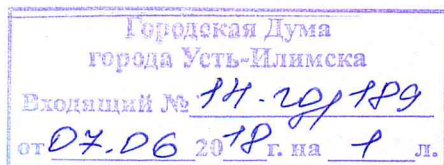 Городская Дума
города Усть-Илимска
Входящий № 14-го/189
от 07.06 2018 г. на 1 л.